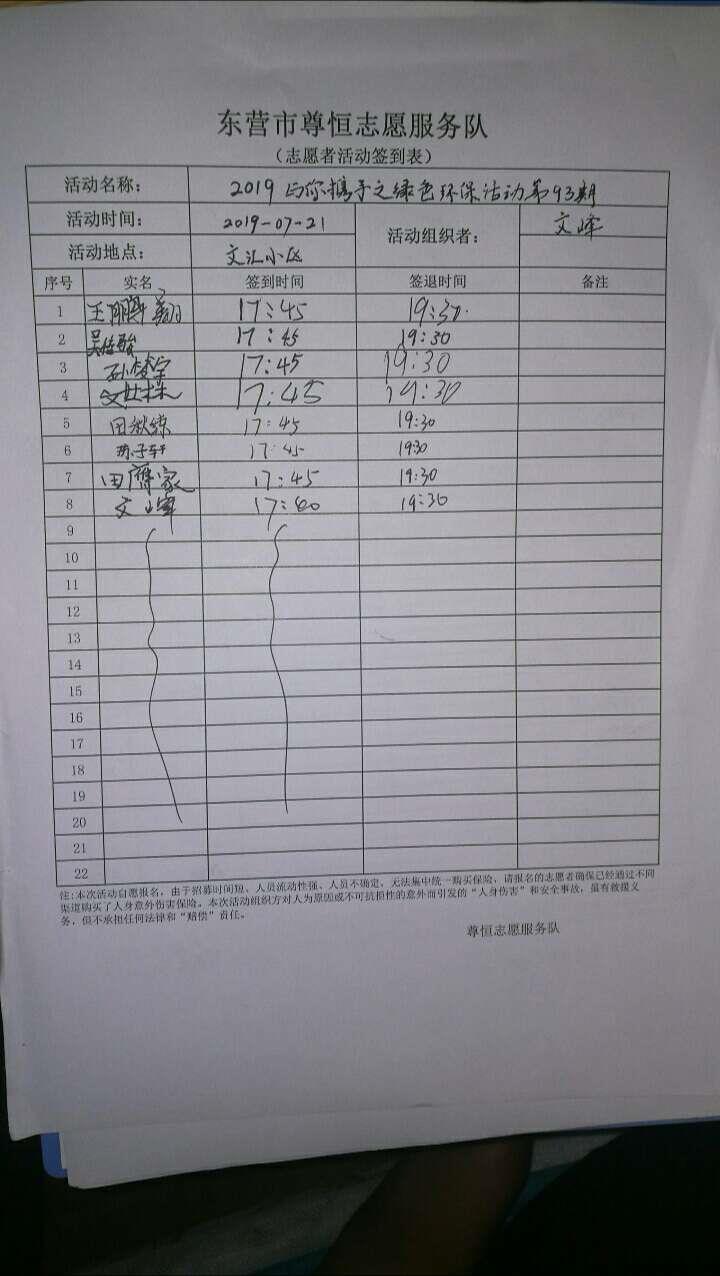 东营市尊恒志愿服务队
（志愿者活动签到表）
活动名称： 2019 与你携手之绿色环保活动第93期
活动时间： 2019-07-21 活动组织者： 文峰
活动地点： 文汇小区
序号 实名 签到时间 签退时间 备注
1 王鹏翔 17:45 19:30
2 17:45 19:30
3 17:45 19:30
4 17:45 19:30
5 田秋综 17:45 19:30
6 17:45 19:30
7 田 家 17:45 19:30
8 文峰 17:40 19:30
9
10
11
12
13
14
15
16
17
18
19
20
21
22
注:本次活动自愿报名，由于招募时间短、人员流动性强、人员不确定，无法集中统一购买保险，请报名的志愿者确保已经通过不同
渠道购买了人身意外伤害保险。本次活动组织方对人为原因或不可抗损性的意外而引发的“人身伤害”和安全事故，虽有救援义
务，但不承担任何法律和“赔偿”责任。
尊恒志愿服务队